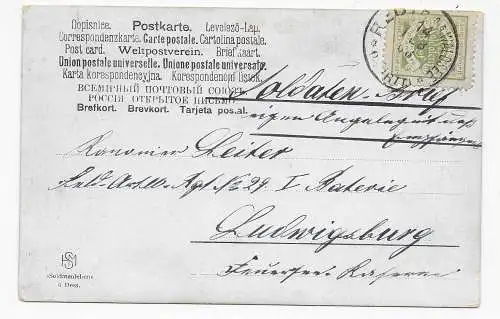 Dopisnice. Postkarte. Levelező-Lap.
Correspondenzkarte. Carte postale. Cartolina postale.
Post card. Weltpostverein. Briefkaart.
Union postale universelle. Unione postale universale.
Karta korespondencyjna. Korespondenční lístek.
ВСЕМІРНЫЙ ПОЧТОВЫЙ СОЮЗЪ
РОССІЯ ОТКРЫТОЕ ПИСЬМО
Brefkort. Brevkort. Tarjeta postal.
Soldaten Brief
eigen Angelegenheit
Empfänger
Kanonier Leiter
Feld-Artl.-Rgt. No 29 I Baterie
Ludwigsburg
Feuersee Kaserne
»Soldatenleben«
6 Dess.